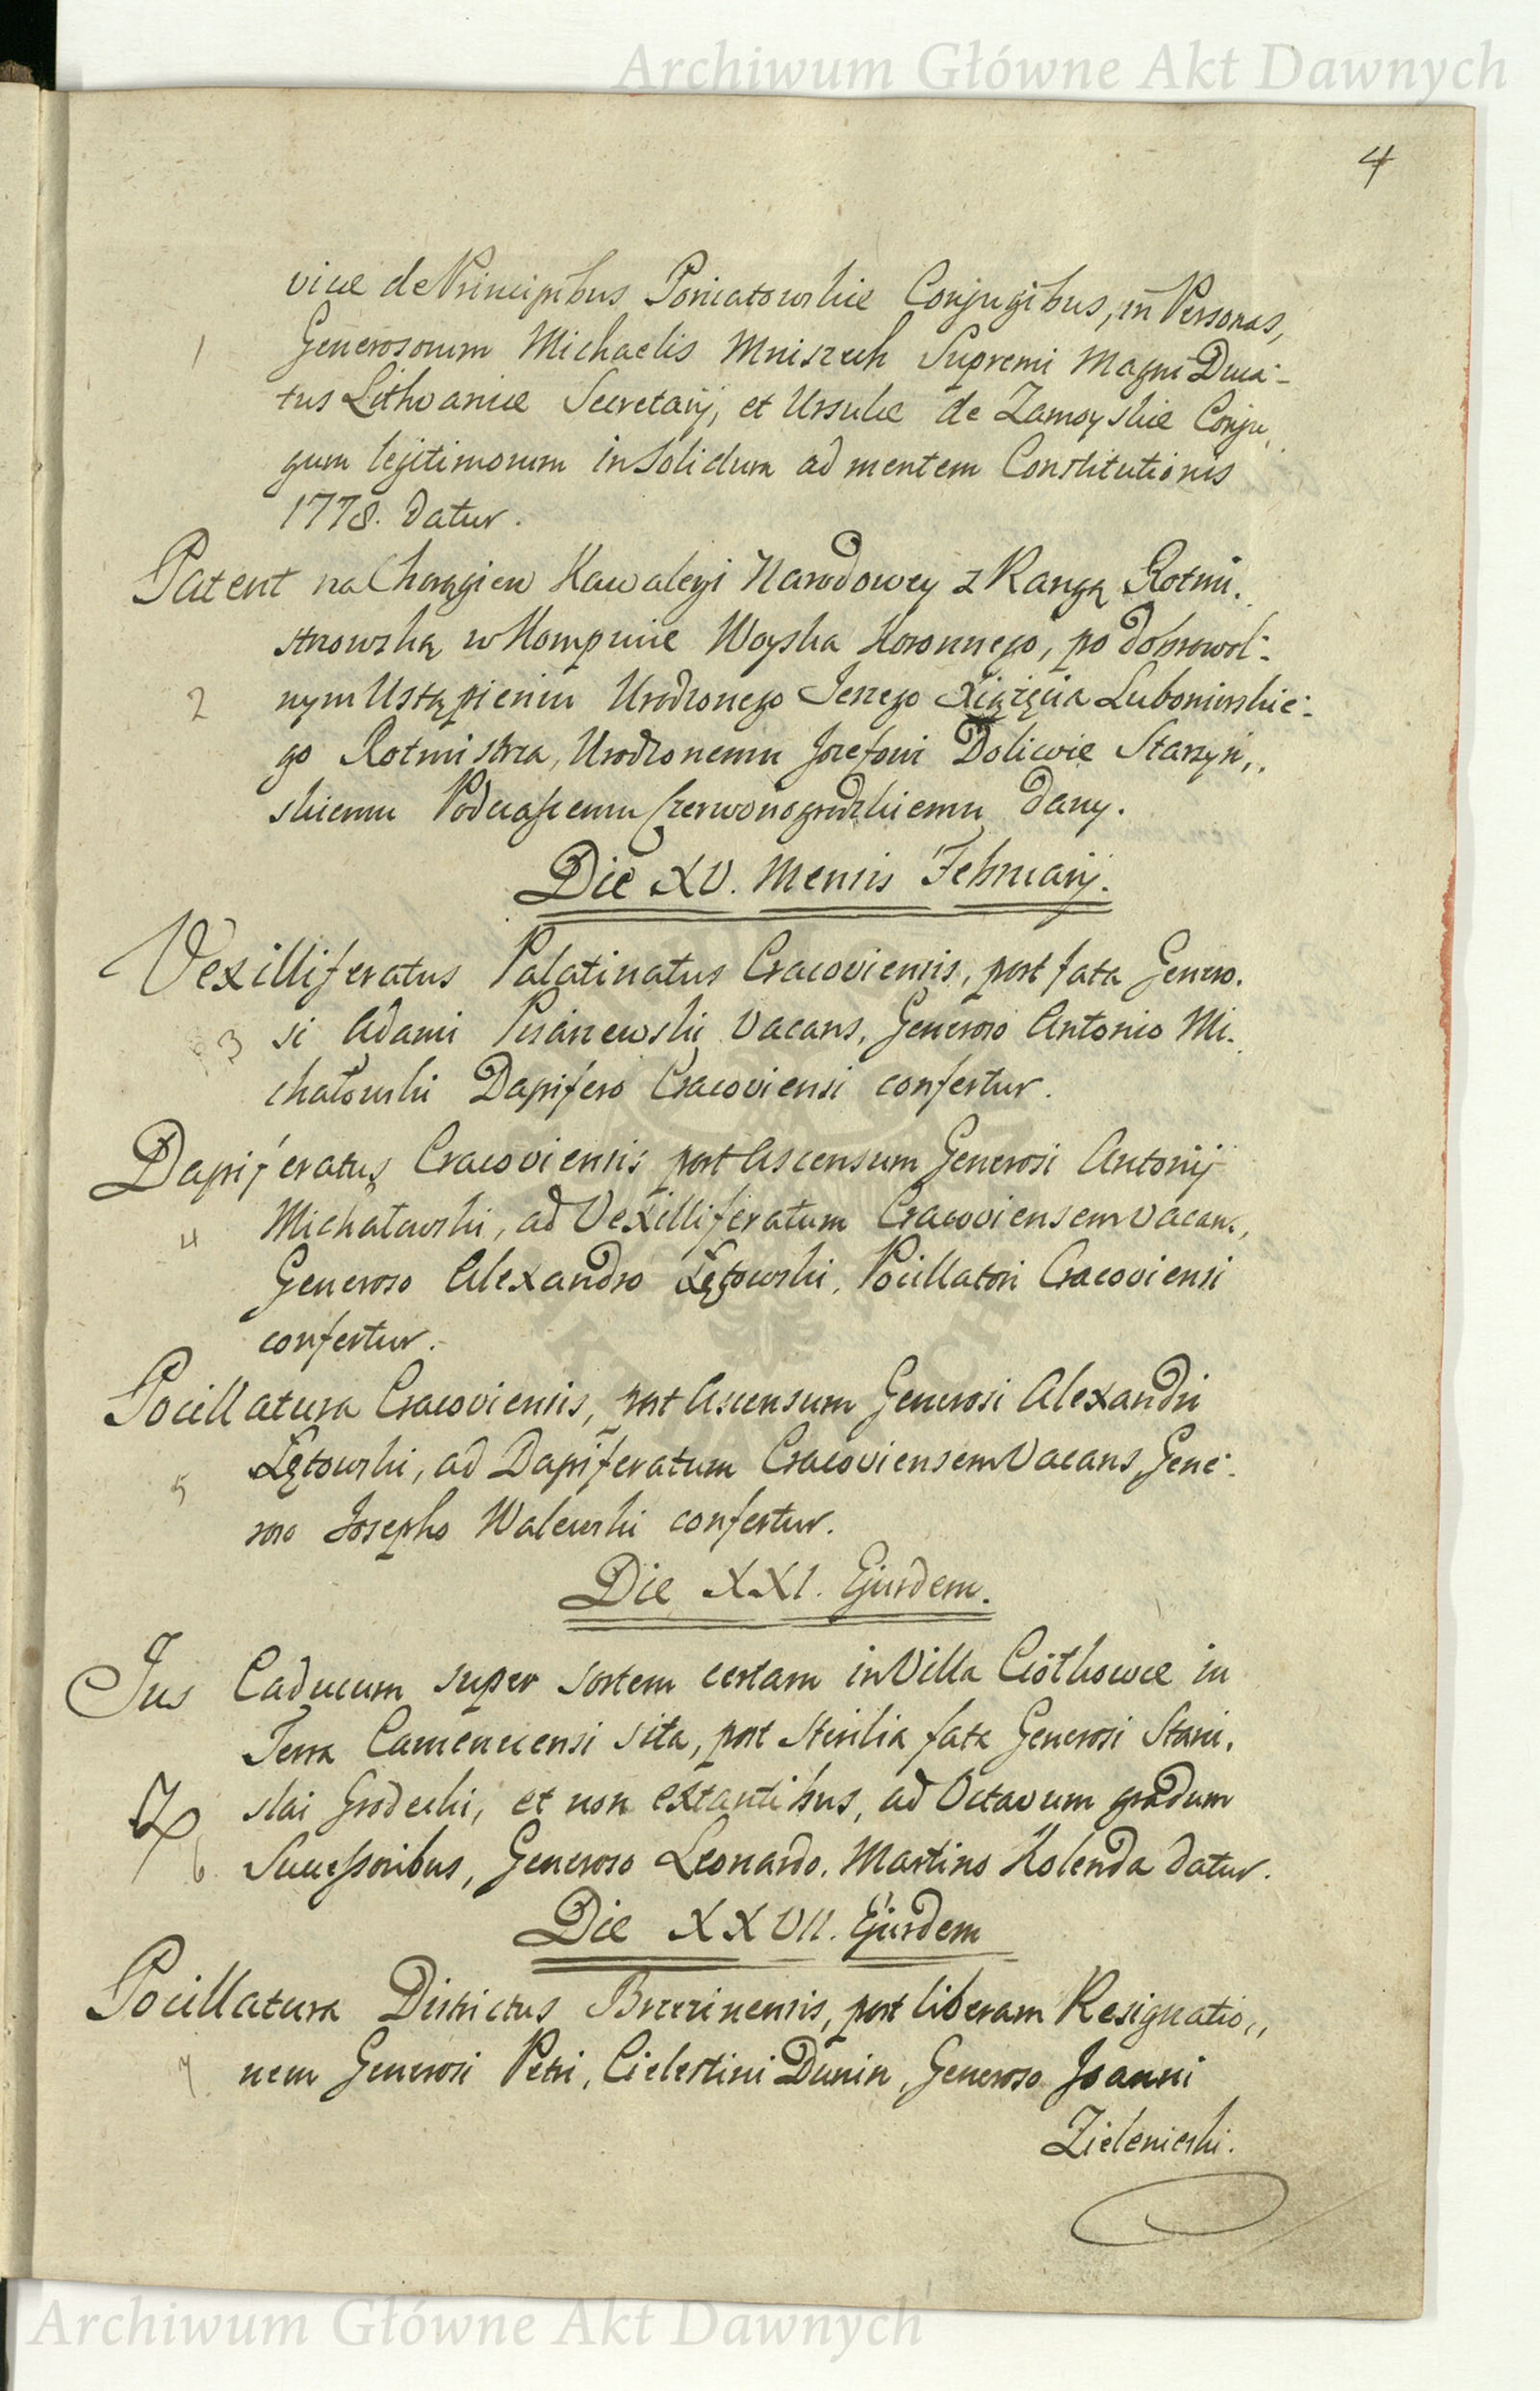 Archiwum Główne Akt Dawnych
4
vicæ de Principibus Poniatowskie Conjugibus, in Personas,
1 Generosorum Michaelis Mniszech Supremi Magni Duca-
tus Lithvaniæ Secretarij, et Ursulæ de Zamoyskie Conju,
gum legitimorum in Solidum ad mentem Constitutionis
1778. Datur.
Patent na Chorągiew Kawaleryi Narodowey z Rangą Rotmi.
strzowską w Kompucie Woyska Koronnego, po dobrowol-
2 nym Ustąpieniu Urodzonego Jerzego Xiążęcia Lubomirskie-
go Rotmistrza, Urodzonemu Jozefowi Doliwie Starzyń,,
skiemu Podczaszemu Czerwonogrodzkiemu Dany.
Die XV. Mensis Februarij.
Vexilliferatus Palatinatus Cracoviensis, post fata Genero.
3 si Adami Vacans, Generoso Antonio Mi.
chałowski Dapifero Cracoviensi confertur.
Dapiferatus Cracoviensis post Ascensum Generosi Antonij
4 Michałowski, ad Vexilliferatum Cracoviensem Vacans,
Generoso Alexandro Łętowski, Pocillatori Cracoviensi
confertur.-
Pocillatura Cracoviensis, post Ascensum Generosi Alexandri
5 Łętowski, ad Dapiferatum Cracoviensem Vacans, Gene-
roso Josepho Walewski confertur.
Die XXI. Ejusdem.
Jus Caducum super sortem certam in Villa in
Terra Camenecensi sita, post sterilia fata Generosi Stani.
slai Grodecki, et non extantibus, ad Octavum gradum
6. Successoribus, Generoso Leonardo, Martino Kolenda datur.
Die XXVII. Ejusdem
Pocillatura Districtus Brzezinensis, post liberam Resignatio,,
7. nem Generosi Petri, Cielestini Dunin, Generoso Joanni
Zielenieski.
Archiwum Główne Akt Dawnych